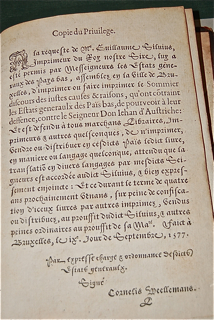 Copie du Priuilege.
A la requeste de Mr. Guillaume Siluius,
Imprimeur du Roy nostre Sire, luy a
esté permis par Messeigneurs les Estatz gene-
raux des Pays bas, assemblez en la Ville de Bru-
xelles, d'imprimer ou faire imprimer le Sommier
discours des iustes causes & raisons, qu'ont contrainct
les Estatz generaulx des Païs bas, de pourueoir à leur
deffence, contre le Seigneur Don Iehan d'Austriche:
Et est defendu à tous marchans, Libraires, Im-
primeurs & autres quelsconques, de n'imprimer,
Vendre ou distribuer en cesdits Païs ledict liure,
en maniere ou langage quelconque, attendu que la
translatiõ en diuers langages par mesdicts Sei-
gneurs est accordée audict Siluius, & bien expres-
sement enjointe: Et ce durant le terme de quatre
ans prochainement Venans, sur peine de confisca-
tion d'iceux liures par autres imprimez, Vendus
ou distribuez, au prouffit dudict Siluius, & autres
peines ordinaires au prouffit de sa Ma. Faict à
Bruxelles, le ix. Jour de Septembre, 1577.
Par expresse charge & ordonnance desdits
Estatz generaulx.
Signé
Cornelis Weellemans.